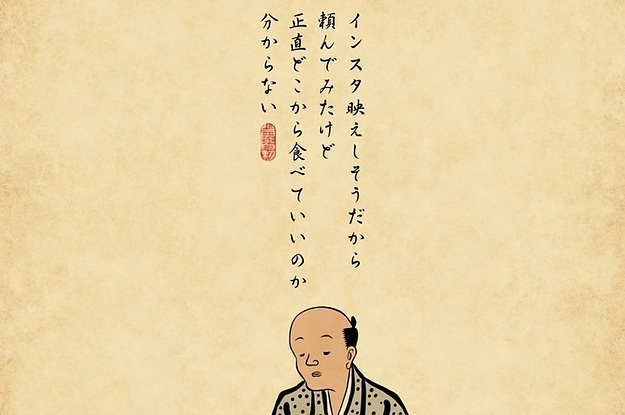 インスタ映えしそうだから
頼んでみたけど
正直どこから食べていいのか
分からない